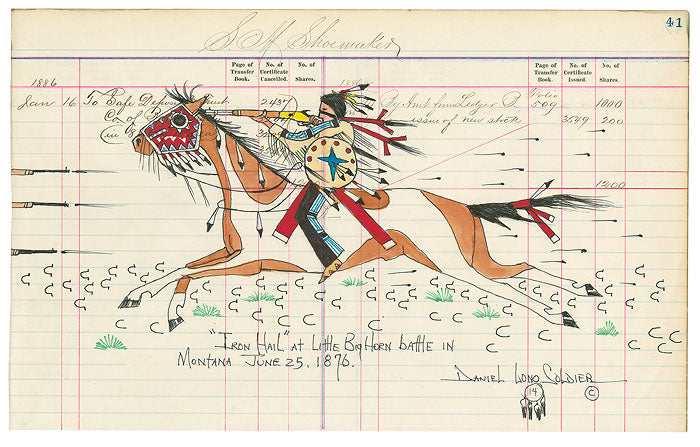 41
S M Shoemaker
Page of Transfer Book. No. of Certificate Cancelled. No. of Shares. Page of Transfer Book. No. of Certificate Issued. No. of Shares.
1886
Jan 16 To Safe Deposit 2437 By Amt from Ledger 509 1000
Co of issue of new stock 3549 200
1200
"IRON HAIL" AT LITTLE BIG HORN battle IN
MONTANA JUNE 25, 1876.
DANIEL LONG SOLDIER
14 ©